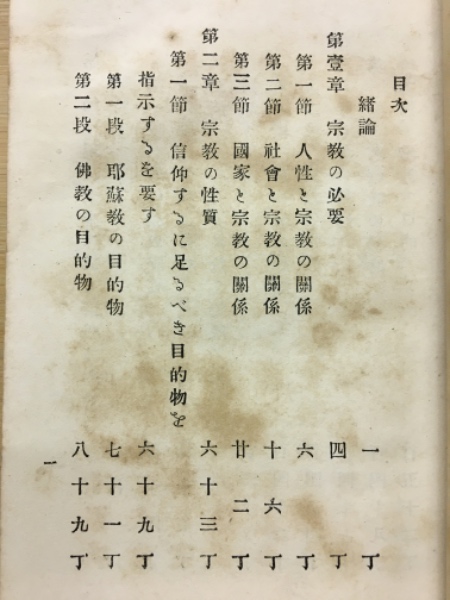 目次
緒論 一丁
第壹章 宗教の必要 四丁
第一節 人性と宗教の關係 六丁
第二節 社會と宗教の關係 十六丁
第三節 國家と宗教の關係 廿二丁
第二章 宗教の性質 六十三丁
第一節 信仰するに足るべき目的物を
指示するを要す 六十九丁
第一段 耶蘇教の目的物 七十一丁
第二段 佛教の目的物 八十九丁
一